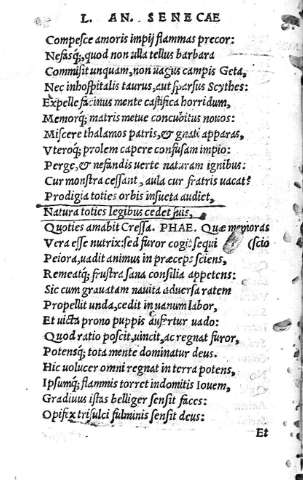 L. AN. SENECAE
Compesce amoris impij flammas precor:
Nefasq́;, quod non ulla tellus barbara
Commisit unquam, non uagus campis Geta,
Nec inhospitalis taurus, aut sparsus Scythes:
Expelle facinus mente castifica horridum,
Memorq́; matris metue concubitus nouos:
Miscere thalamos patris, & gnati apparas,
Vteroq́; prolem capere confusam impio:
Perge, & nefandis uerte naturam ignibus:
Cur monstra cessant, aula cur fratris uacat?
Prodigia toties orbis insueta audiet,
Natura toties legibus cedet suis,
Quoties amabit Cressa. PHAE. Quæ memoras
Vera esse nutrix: sed furor cogit sequi (scio
Peiora, uadit animus in præceps sciens,
Remeatq́; frustra sana consilia appetens:
Sic cum grauatam nauita aduersa ratem
Propellit unda, cedit in uanum labor,
Et uicta prono puppis aufertur uado:
Quod ratio poscit, uincit, ac regnat furor,
Potensq́; tota mente dominatur deus.
Hic uolucer omni regnat in terra potens,
Ipsumq́; flammis torret indomitis Iouem,
Gradiuus istas belliger sensit faces:
Opifex trisulci fulminis sensit deus:
Et